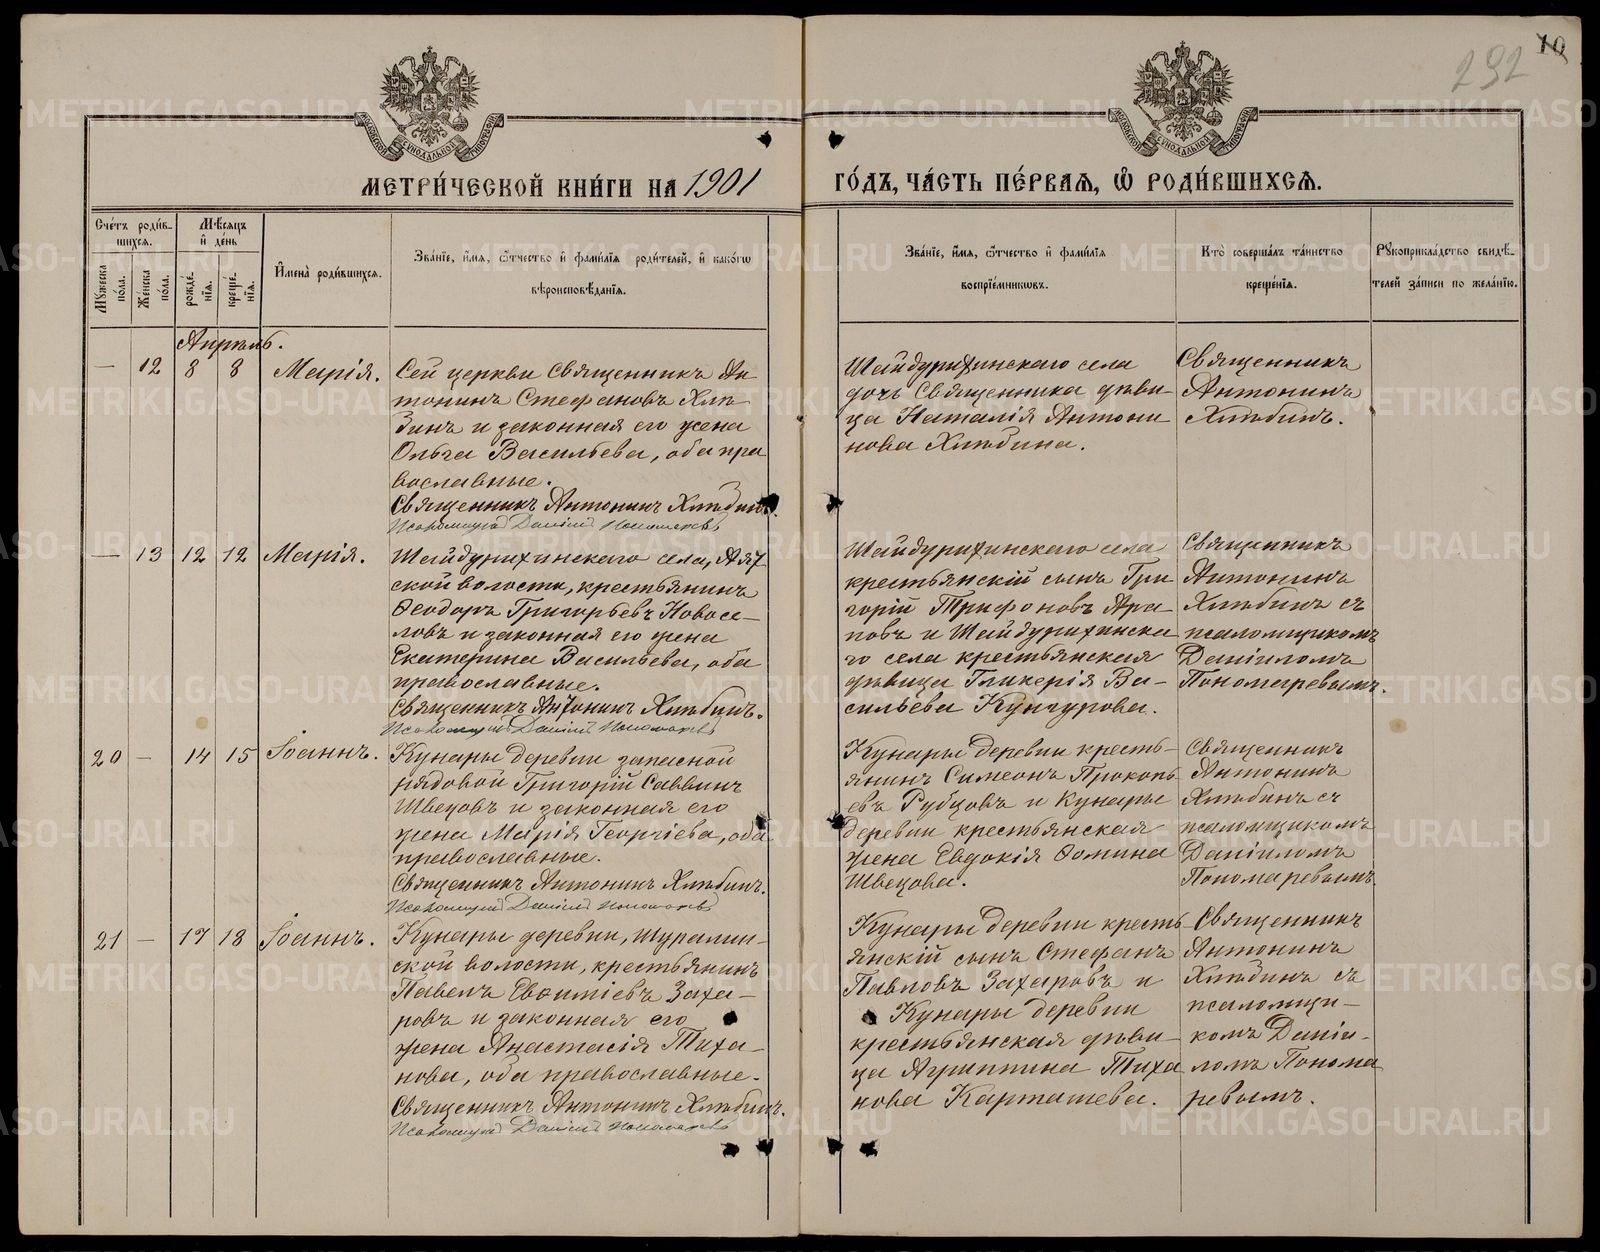 292
10
МЕТРИ́ЧЕСКОЙ КНИ́ГИ НА 1901
ГО́ДЪ, ЧА́СТЬ ПЕ́РВАЯ, Ѡ РОДИ́ВШИХСЯ.
Сче́тъ роди́в-
шихся.
Мѣ́сяцъ
и҆ де́нь
Мꙋ́жеска по́ла.
Же́нска по́ла.
рожде́-
нїѧ.
креще́-
нїѧ.
И҆мена̀ роди́вшихся.
Зва́нїе, и҆́мя, ѻ҆́тчество и҆ фами́лїѧ роди́телей, и҆ како́гѡ
вѣроисповѣ́данїѧ.
Зва́нїе, и҆́мя, ѻ҆́тчество и҆ фами́лїѧ
воспрїе́мникѡвъ.
Кто̀ соверша́лъ та́инство
креще́нїѧ.
Рꙋкоприкла́дство свидѣ́-
телей за́писи по жела́нїю.
Апрѣль.
— 12 8 8 Марія.
Сей церкви Священникъ Ан
тонинъ Стефановъ Хлѣ-
бинъ и законная его жена
Ольга Васильева, оба пра
вославные.
Священникъ Антонинъ Хлѣбинъ.
Псаломщикъ Даніилъ Пономаревъ
Шайдурихинскаго села
дочь Священника дѣви-
ца Наталія Антони
нова Хлѣбина.
Священникъ
Антонинъ
Хлѣбинъ.
— 13 12 12 Марія.
Шайдурихинскаго села, Аят
ской волости, крестьянинъ
Ѳеодоръ Григорьевъ Новосе-
ловъ и законная его жена
Екатерина Васильева, оба
православные.
Священникъ Антонинъ Хлѣбинъ.
Псаломщикъ Даніилъ Пономаревъ
Шайдурихинскаго села
крестьянскій сынъ Гри
горій Трифоновъ Ара
повъ и Шайдурихинска
го села крестьянская
дѣвица Гликерія Ва-
сильева Кунгурова.
Священникъ
Антонинъ
Хлѣбинъ съ
псаломщикомъ
Даніиломъ
Пономаревымъ.
20 — 14 15 Іоаннъ.
Кунары деревни запасной
рядовой Григорій Саввинъ
Швецовъ и законная его
жена Марія Георгіева, оба
православные.
Священникъ Антонинъ Хлѣбинъ.
Псаломщикъ Даніилъ Пономаревъ
Кунары деревни кресть-
янинъ Симеонъ Прокопь
евъ Рубцовъ и Кунары
деревни крестьянская
жена Евдокія Ѳомина
Швецова.
Священникъ
Антонинъ
Хлѣбинъ съ
псаломщикомъ
Даніиломъ
Пономаревымъ.
21 — 17 18 Іоаннъ.
Кунары деревни, Шуралин-
ской волости, крестьянинъ
Павелъ Евѳиміевъ Заха-
ровъ и законная его
жена Анастасія Тиха-
нова, оба православные.
Священникъ Антонинъ Хлѣбинъ.
Псаломщикъ Даніилъ Пономаревъ
Кунары деревни кресть
янскій сынъ Стефанъ
Павловъ Захаровъ и
Кунары деревни
крестьянская дѣви-
ца Агриппина Тиха
нова Карташева.
Священникъ
Антонинъ
Хлѣбинъ съ
псаломщи-
комъ Даніи-
ломъ Понома
ревымъ.